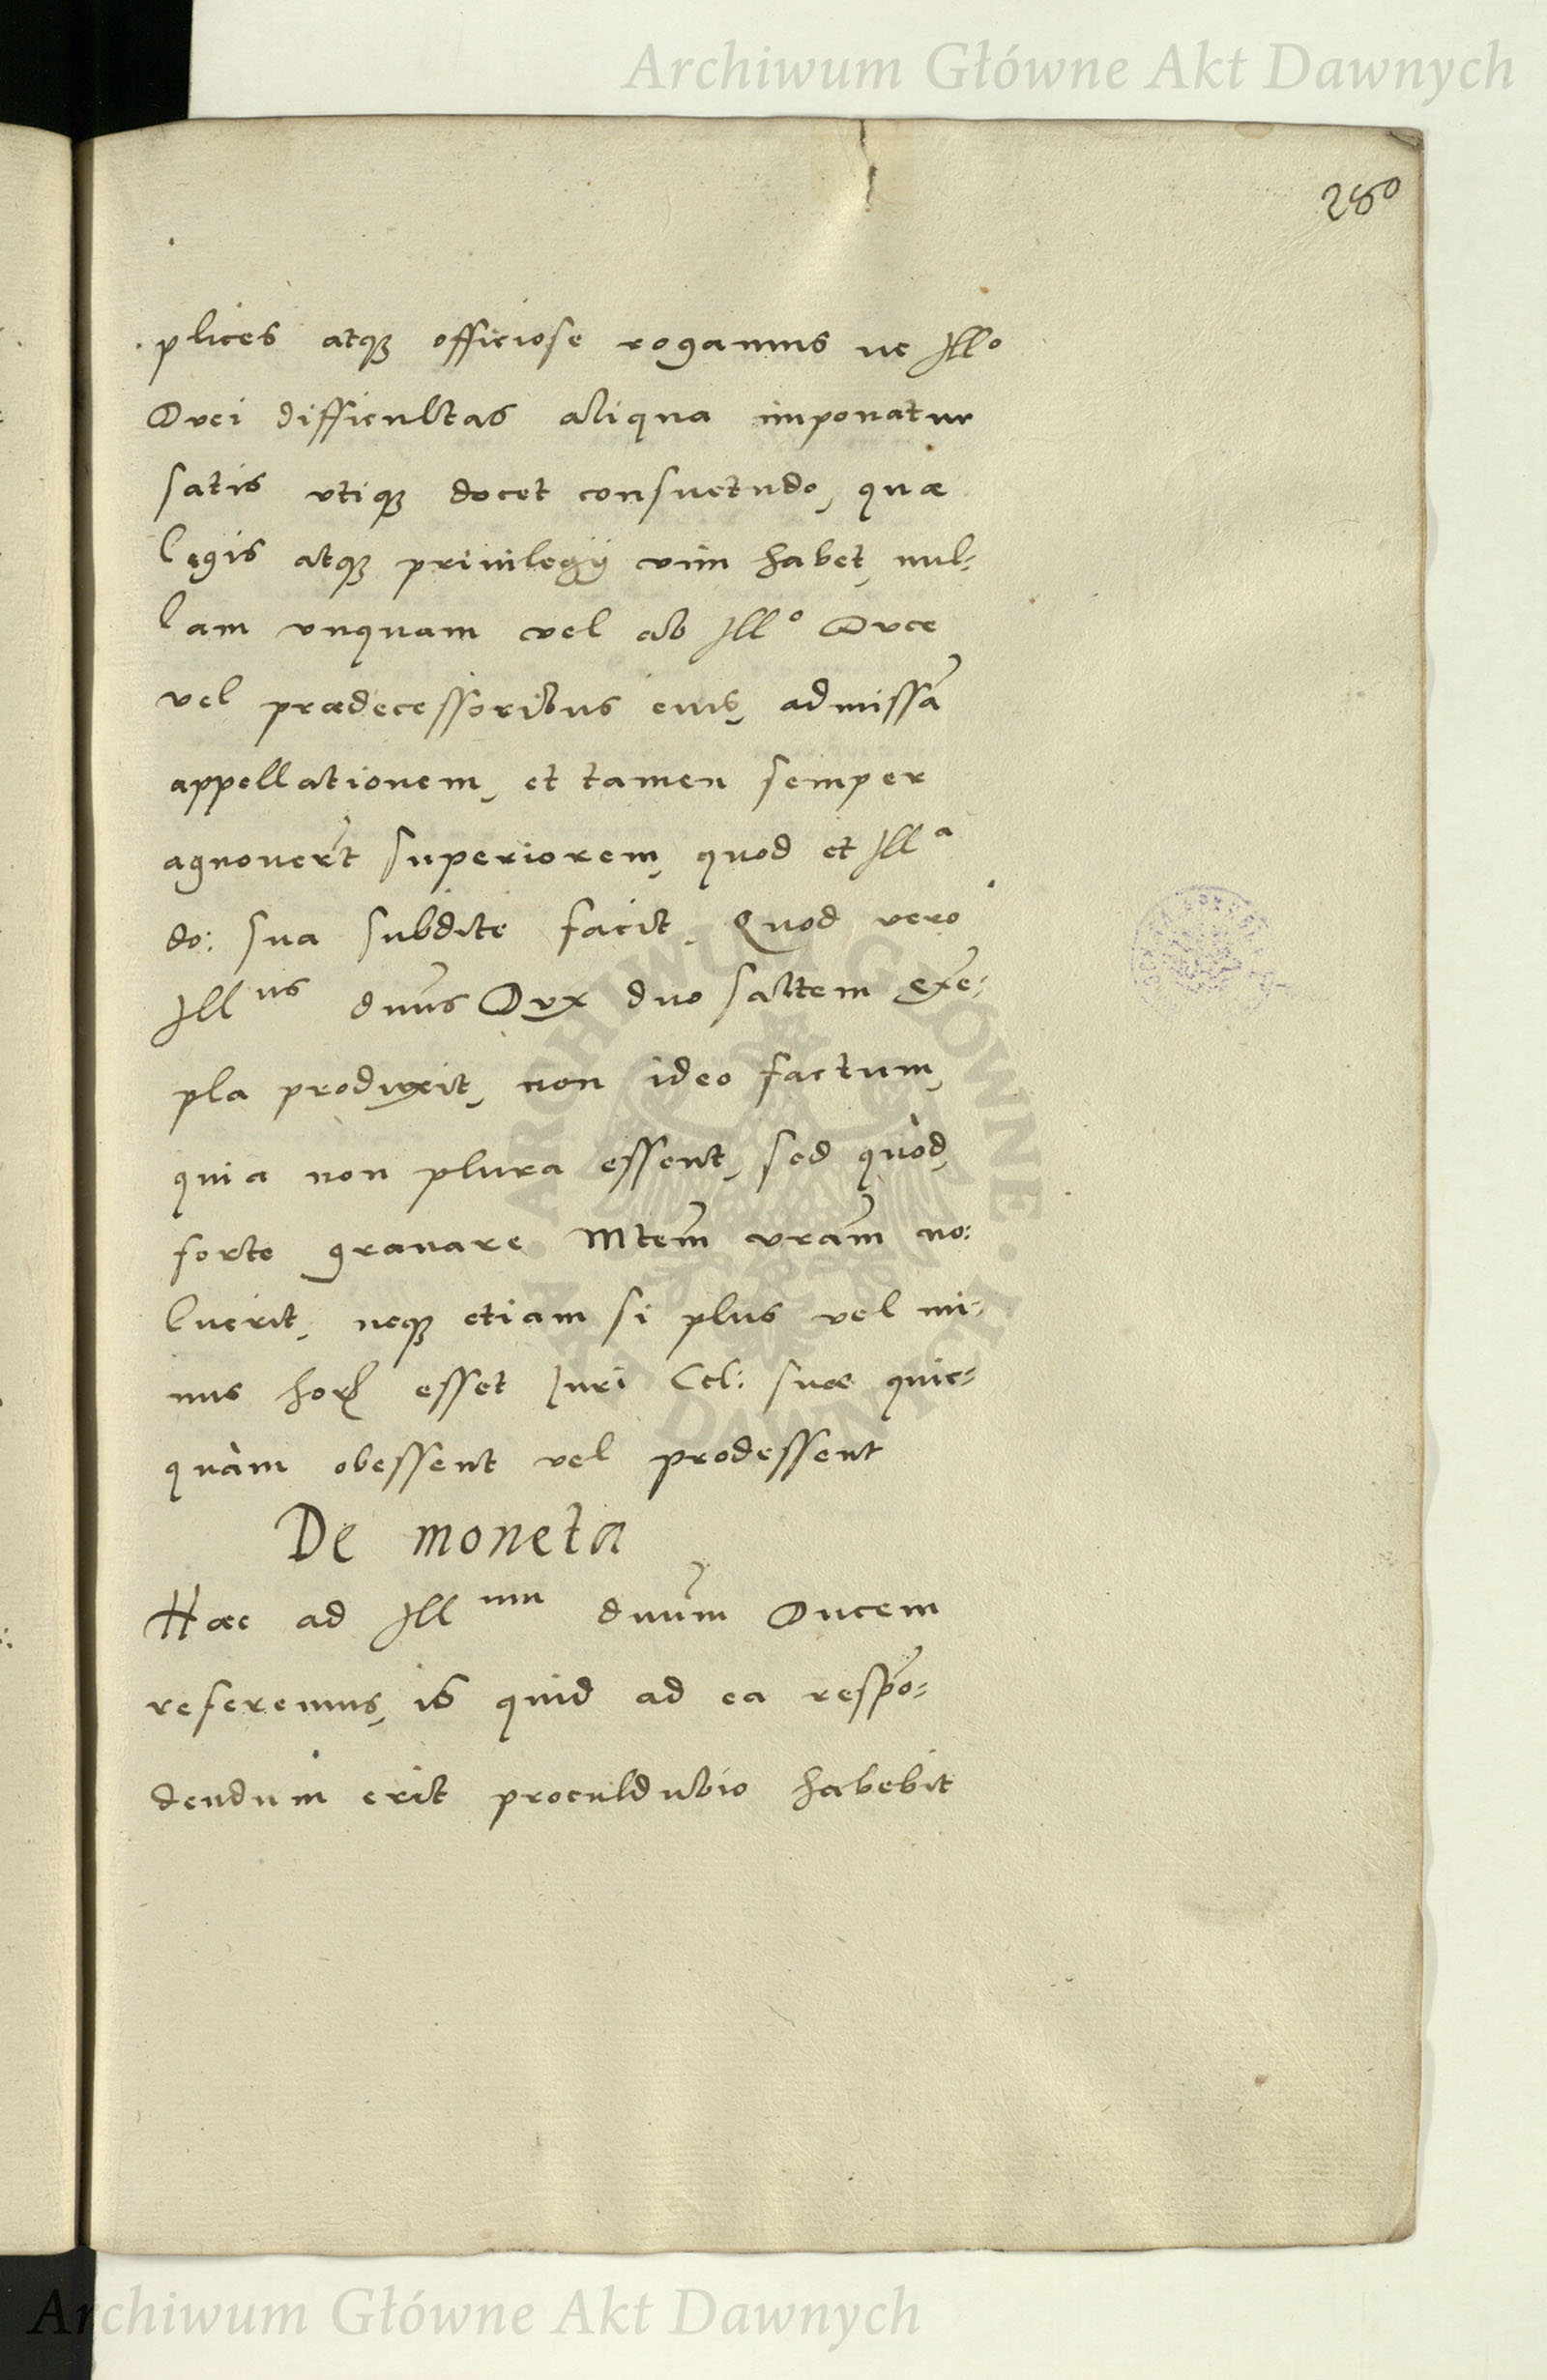 Archiwum Główne Akt Dawnych
280
plices atq₃ officiose rogamus ne Illo
Duci difficultas aliqua imponatur
satis vtiq₃ docet consuetudo, quæ
legis atq₃ priuilegÿ vim habet, nul=
lam vnquam vel ab Illᵒ Duce
vel prædecessoribus eius, admissã
appellationem, et tamen semper
agnouer̃t superiorem, quod et Illᵃ
do: sua subdite facit. Quod vero
Illᵘˢ dñus Dux duo saltem exẽ=
pla produxit, non ideo factum,
quia non plura essent, sed quòd,
forte grauare Mtem̃ vram̃ no:
luerit, neq₃ etiam si plus vel mi=
nus horꝝ esset Juri Cel: suæ quic=
quàm obessent vel prodessent
De moneta
Hæc ad Illᵘᵐ dnũm Ducem
referemus, is quid ad ea respõ=
dendum erit proculdubio habebit
ARCHIWUM GŁÓWNE AKT DAWNYCH
Archiwum Główne Akt Dawnych